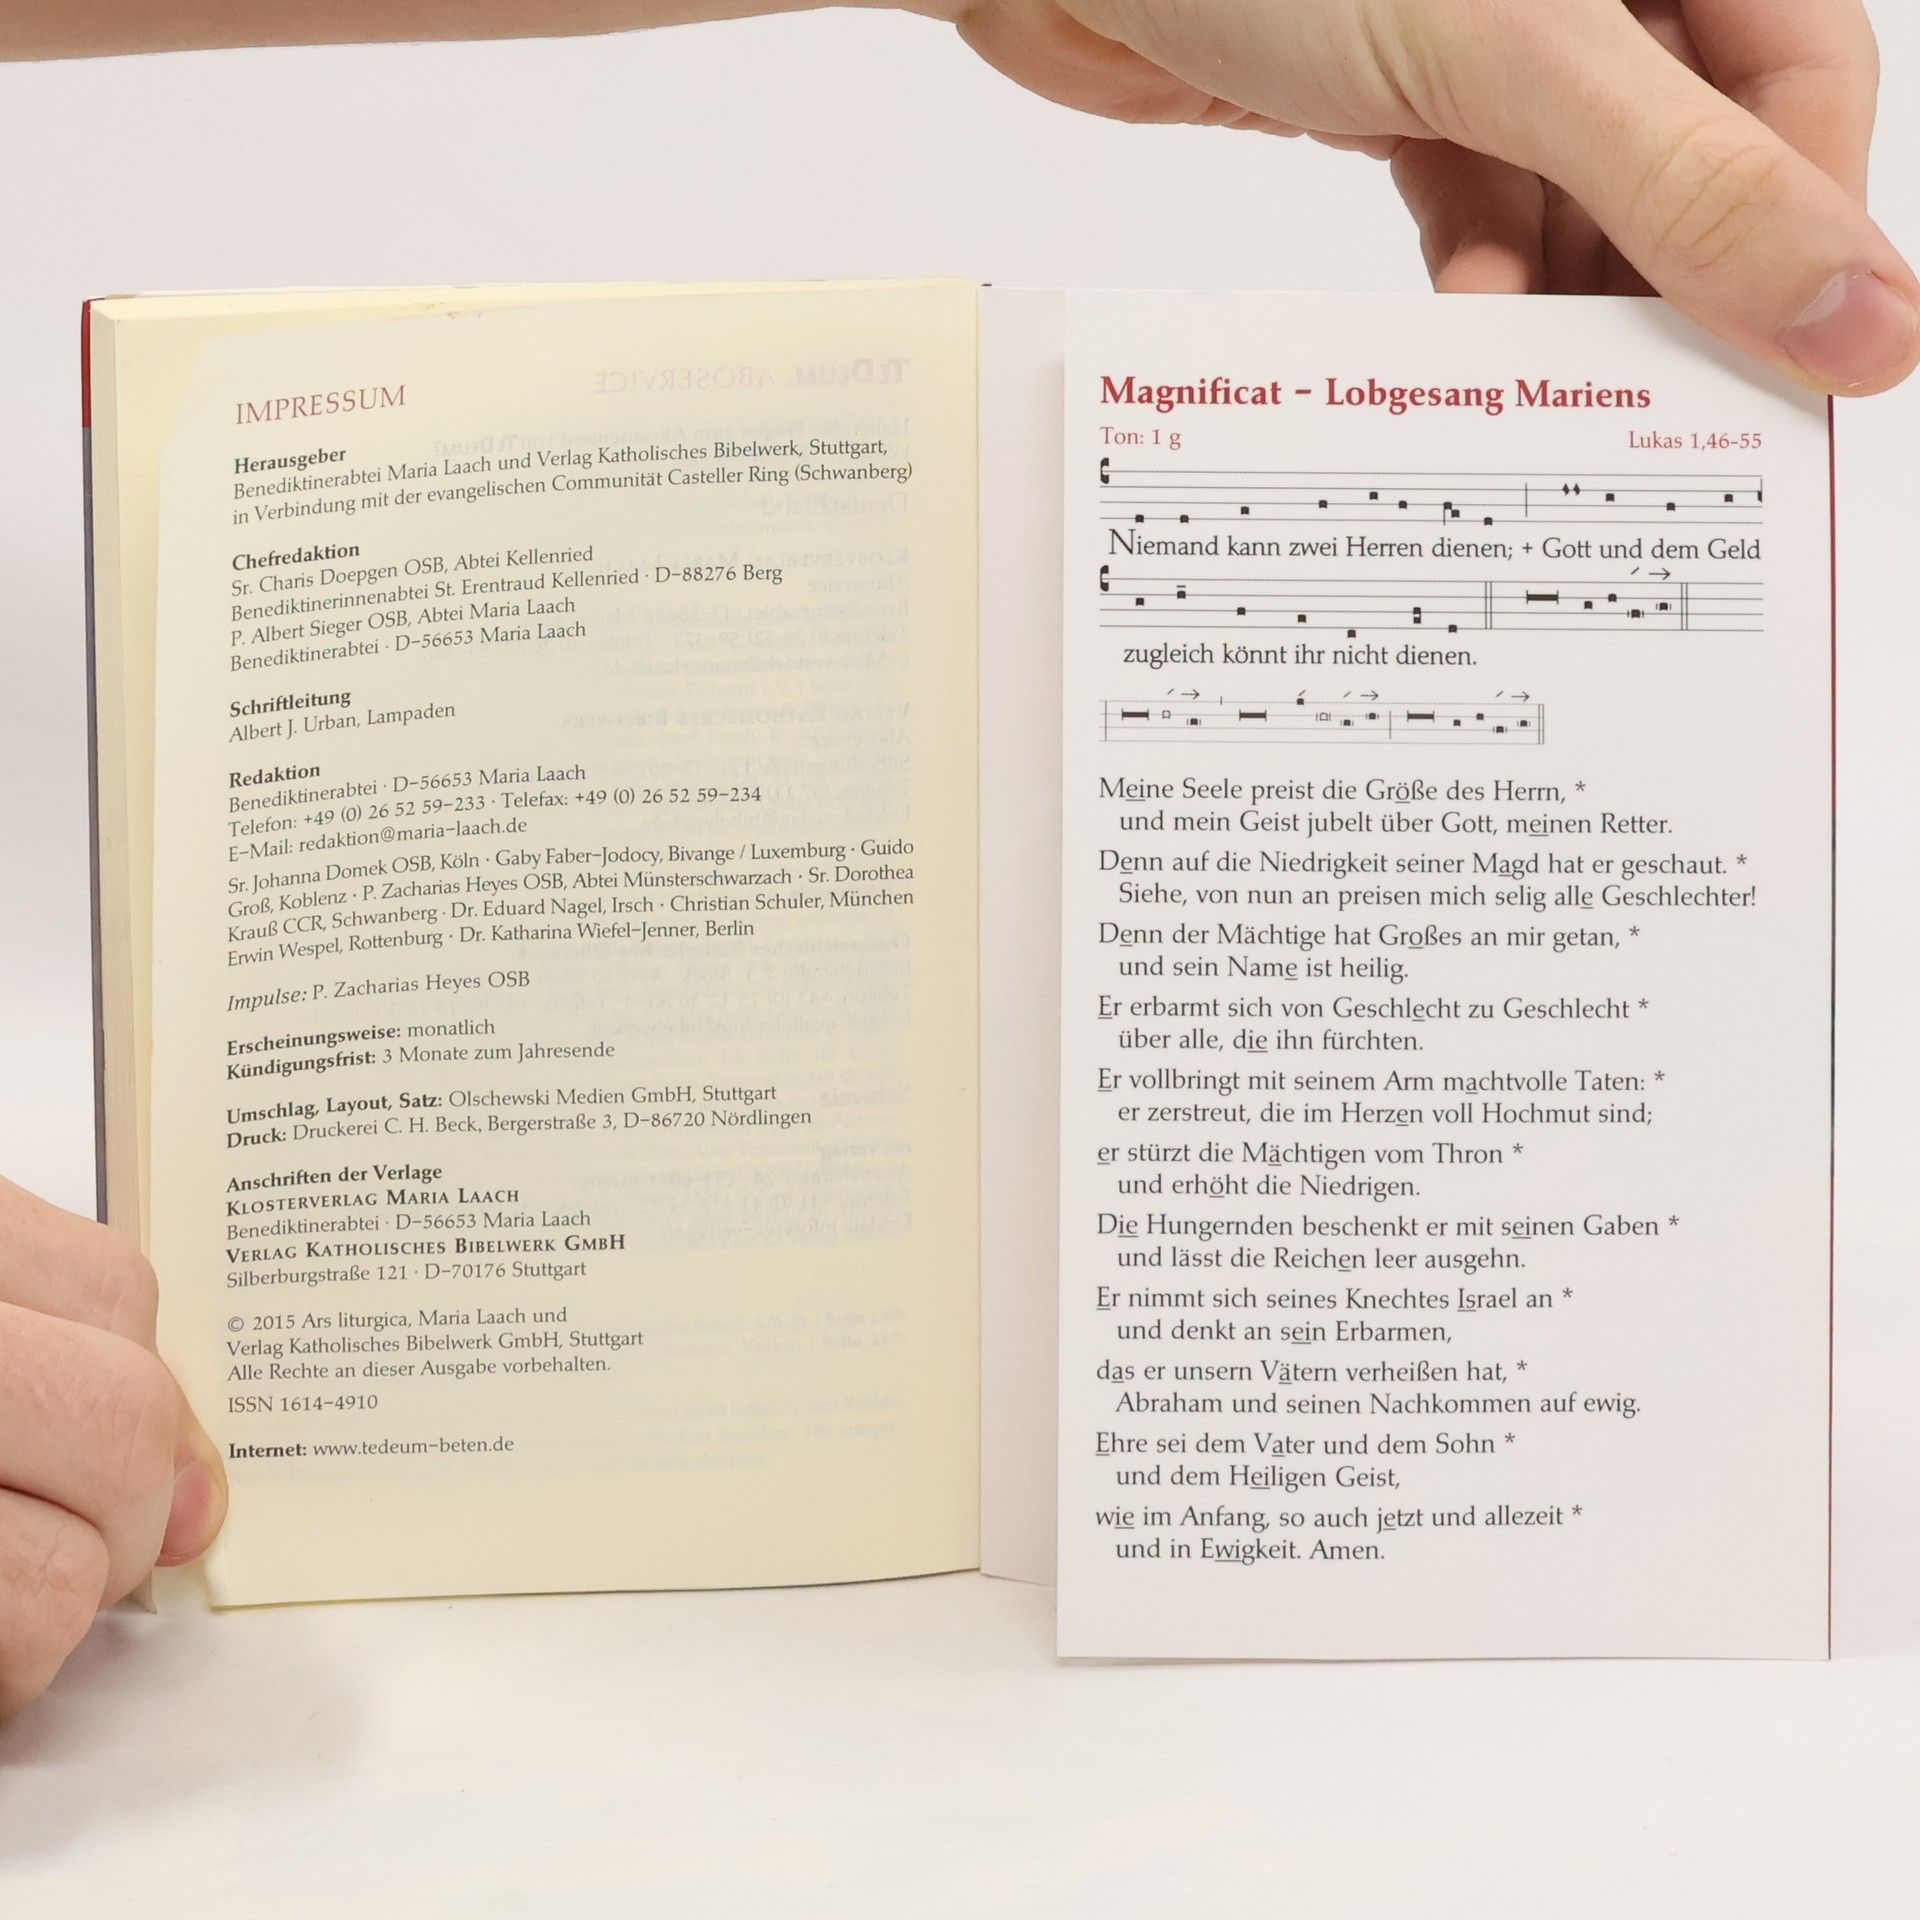 IMPRESSUM
Herausgeber
Benediktinerabtei Maria Laach und Verlag Katholisches Bibelwerk, Stuttgart,
in Verbindung mit der evangelischen Communität Casteller Ring (Schwanberg)
Chefredaktion
Sr. Charis Doepgen OSB, Abtei Kellenried
Benediktinerinnenabtei St. Erentraud Kellenried · D-88276 Berg
P. Albert Sieger OSB, Abtei Maria Laach
Benediktinerabtei · D-56653 Maria Laach
Schriftleitung
Albert J. Urban, Lampaden
Redaktion
Benediktinerabtei · D-56653 Maria Laach
Telefon: +49 (0) 26 52 59-233 · Telefax: +49 (0) 26 52 59-234
E-Mail: redaktion@maria-laach.de
Sr. Johanna Domek OSB, Köln · Gaby Faber-Jodocy, Bivange / Luxemburg · Guido
Groß, Koblenz · P. Zacharias Heyes OSB, Abtei Münsterschwarzach · Sr. Dorothea
Krauß CCR, Schwanberg · Dr. Eduard Nagel, Irsch · Christian Schuler, München
Erwin Wespel, Rottenburg · Dr. Katharina Wiefel-Jenner, Berlin
Impulse: P. Zacharias Heyes OSB
Erscheinungsweise: monatlich
Kündigungsfrist: 3 Monate zum Jahresende
Umschlag, Layout, Satz: Olschewski Medien GmbH, Stuttgart
Druck: Druckerei C. H. Beck, Bergerstraße 3, D-86720 Nördlingen
Anschriften der Verlage
KLOSTERVERLAG MARIA LAACH
Benediktinerabtei · D-56653 Maria Laach
VERLAG KATHOLISCHES BIBELWERK GMBH
Silberburgstraße 121 · D-70176 Stuttgart
© 2015 Ars liturgica, Maria Laach und
Verlag Katholisches Bibelwerk GmbH, Stuttgart
Alle Rechte an dieser Ausgabe vorbehalten.
ISSN 1614-4910
Internet: www.tedeum-beten.de
Magnificat – Lobgesang Mariens
Ton: 1 g
Lukas 1,46-55
Niemand kann zwei Herren dienen; + Gott und dem Geld
zugleich könnt ihr nicht dienen.
Meine Seele preist die Größe des Herrn, *
und mein Geist jubelt über Gott, meinen Retter.
Denn auf die Niedrigkeit seiner Magd hat er geschaut. *
Siehe, von nun an preisen mich selig alle Geschlechter!
Denn der Mächtige hat Großes an mir getan, *
und sein Name ist heilig.
Er erbarmt sich von Geschlecht zu Geschlecht *
über alle, die ihn fürchten.
Er vollbringt mit seinem Arm machtvolle Taten: *
er zerstreut, die im Herzen voll Hochmut sind;
er stürzt die Mächtigen vom Thron *
und erhöht die Niedrigen.
Die Hungernden beschenkt er mit seinen Gaben *
und lässt die Reichen leer ausgehn.
Er nimmt sich seines Knechtes Israel an *
und denkt an sein Erbarmen,
das er unsern Vätern verheißen hat, *
Abraham und seinen Nachkommen auf ewig.
Ehre sei dem Vater und dem Sohn *
und dem Heiligen Geist,
wie im Anfang, so auch jetzt und allezeit *
und in Ewigkeit. Amen.